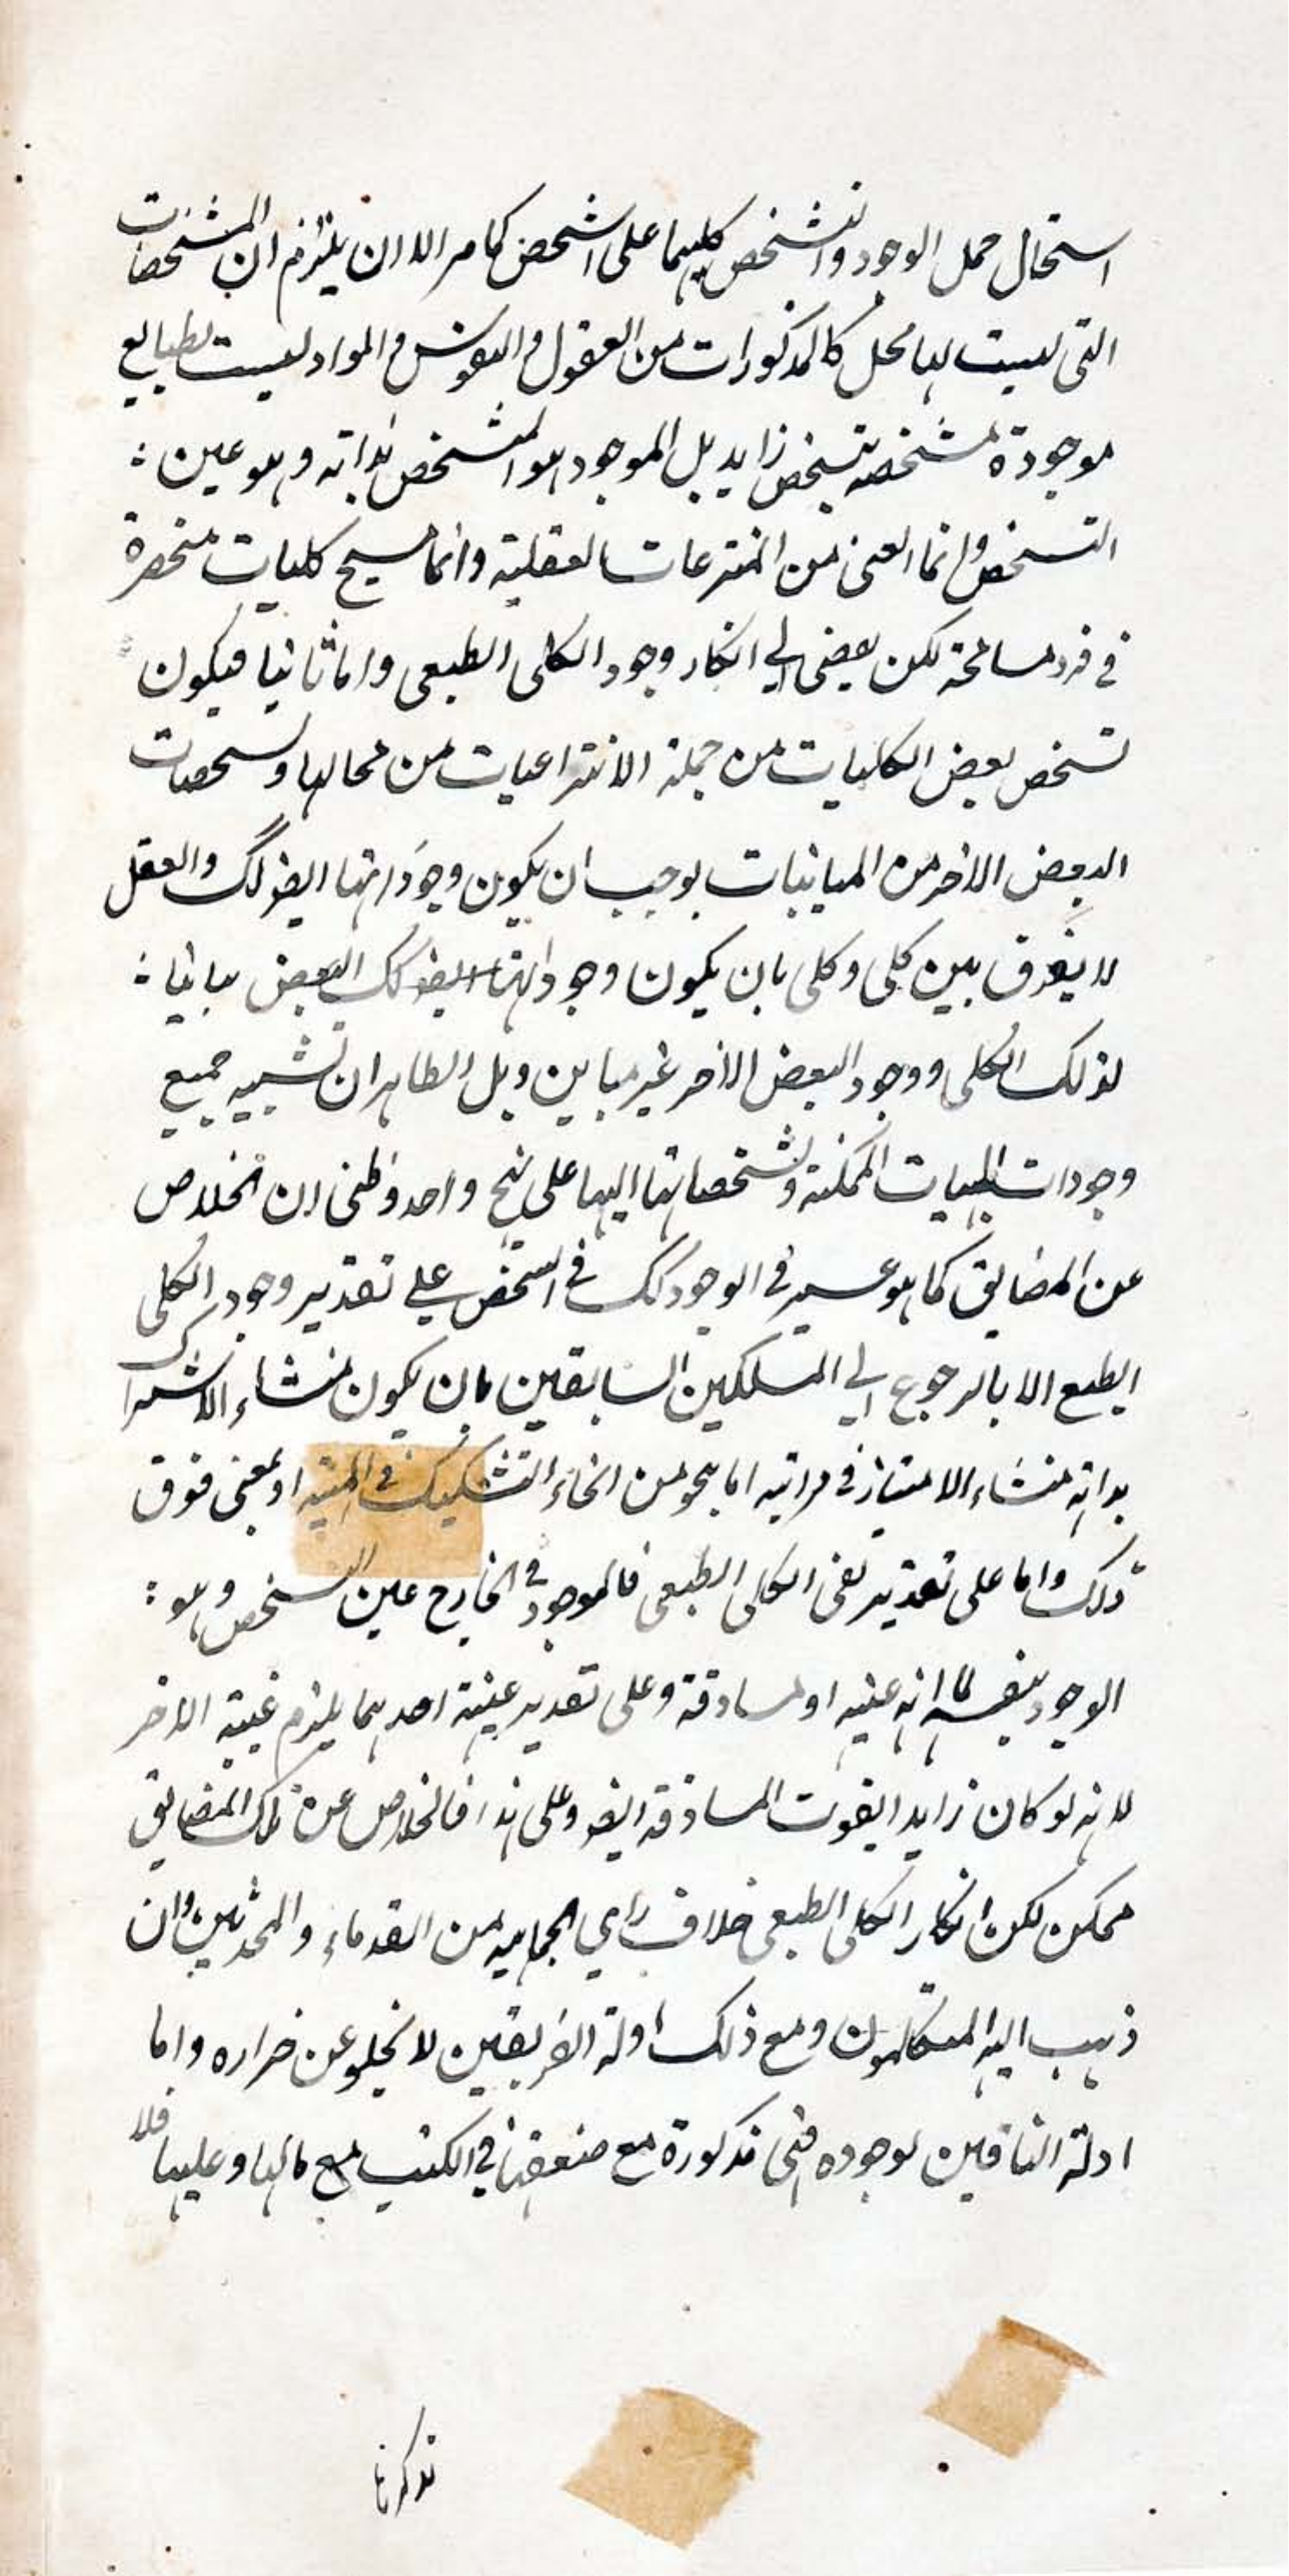 استحال حمل الوجود والتشخص كليهما على الشخص كما مر الا ان يلتزم ان المشخصات
التى ليست لها محل كالمذكورات من العقول والنفوس والمواد ليست بطبايع
موجودة متشخصه بتشخص زايد بل الموجود هو المتشخص بذاته وهو عين :
التشخص وانما المعنى من المنتزعات العقلية وانما سيح كليات منحصرة
فى فرد مسامحة لكن يفضى الى انكار وجود الكلى الطبعى واما ثانيا فيكون
تشخص بعض الكليات من جملة الانتزاعيات من محالها وتشخصات
البعض الاخر من المباينات يوجب ان يكون وجوداتها ايضا كك والعقل
لا يفرق بين كلى وكلى بان يكون وجوداتها ايضا كك البعض مباينا :
لذلك الكلى ووجود البعض الاخر غير مباين وبل الظاهر ان تشبيه جميع
وجودات المهيات الممكنة وتشخصاتها اليها على نهج واحد وظنى ان الخلاص
عن المضايق كما هو عسير فى الوجود كك فى التشخص على تقدير وجود الكلى
الطبع الا بالرجوع الى المسلكين السابقين بان يكون منشاء الاشتراك
بذاته منشاء الامتياز فى مراتبه اما بنحو من انحاء التشكيك فى المهية او بمعنى فوق
ذلك واما على تقدير نفى الكلى الطبعى فالموجود فى الخارج عين التشخص وهو :
الوجود بنفسه لما انه عينه او لمساوقة وعلى تقدير عينية احدهما يلزم عينية الاخر
لانه لو كان زايدا يفوت المساوقة ايضا وعلى هذا فالخلاص عن تلك المضايق
ممكن لكن انكار الكلى الطبعى خلاف راي الجماهير من القدماء والمحدثين وان
ذهب اليه المتكلمون ومع ذلك ادلة الفريقين لا تخلو عن خراره واما
ادلة النافين لوجوده فهى مذكورة مع ضعفها فى الكتب مع مالها وعليها فلا
نذكرها